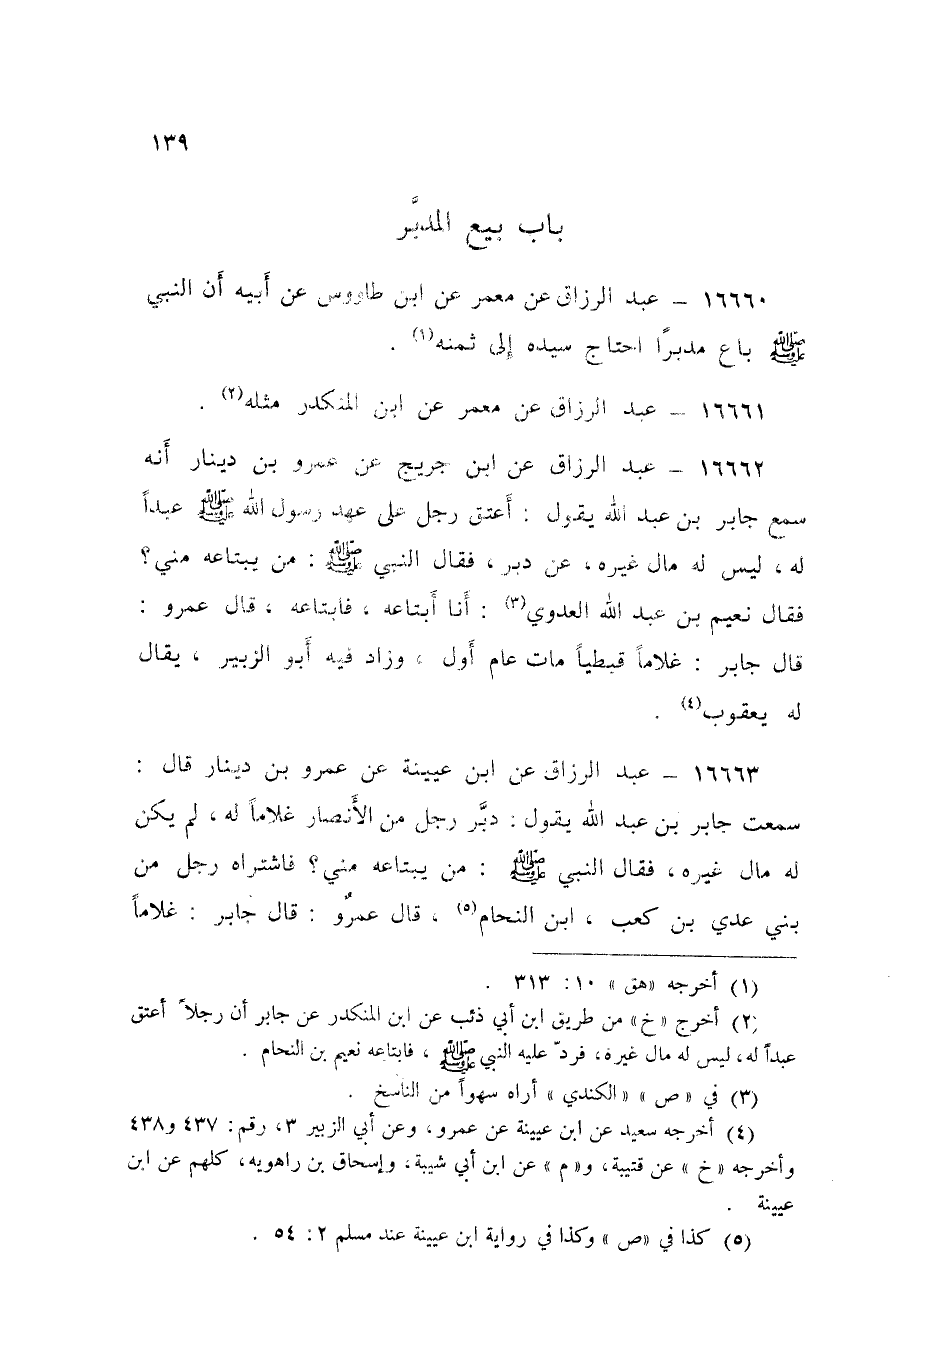 ١٣٩
باب بيع المدبَّر
١٦٦٦٠ – عبد الرزاق عن معمر عن ابن طاووس عن أبيه أن النبي
ﷺ باع مدبرًا احتاج سيده إلى ثمنه(١) .
١٦٦٦١ – عبد الرزاق عن معمر عن ابن المنكدر مثله(٢) .
١٦٦٦٢ – عبد الرزاق عن ابن جريج عن عمرو بن دينار أنه
سمع جابر بن عبد الله يقول : أعتق رجل على عهد رسول الله ﷺ عبداً
له ، ليس له مال غيره ، عن دبر ، فقال النبي ﷺ : من يبتاعه مني؟
فقال نعيم بن عبد الله العدوي(٣) : أنا أبتاعه ، فابتاعه ، قال عمرو :
قال جابر : غلاماً قبطياً مات عام أول ، وزاد فيه أبو الزبير ، يقال
له يعقوب(٤) .
١٦٦٦٣ – عبد الرزاق عن ابن عيينة عن عمرو بن دينار قال :
سمعت جابر بن عبد الله يقول : دبَّر رجل من الأنصار غلاماً له ، لم يكن
له مال غيره ، فقال النبي ﷺ : من يبتاعه مني؟ فاشتراه رجل من
بني عدي بن كعب ، ابن النحام(٥) ، قال عمرٌو : قال جابر : غلاماً
(١) أخرجه «هق» ١٠: ٣١٣ .
(٢) أخرج «خ» من طريق ابن أبي ذئب عن ابن المنكدر عن جابر أن رجلاً أعتق
عبداً له، ليس له مال غيره، فردّ عليه النبي ﷺ ، فابتاعه نعيم بن النحام .
(٣) في «ص» «الكندي» أراه سهواً من الناسخ .
(٤) أخرجه سعيد عن ابن عيينة عن عمرو، وعن أبي الزبير ٣، رقم: ٤٣٧ و٤٣٨
وأخرجه «خ» عن قتيبة، و«م» عن ابن أبي شيبة، وإسحاق بن راهويه، كلهم عن ابن
عيينة .
(٥) كذا في «ص» وكذا في رواية ابن عيينة عند مسلم ٢: ٥٤ .